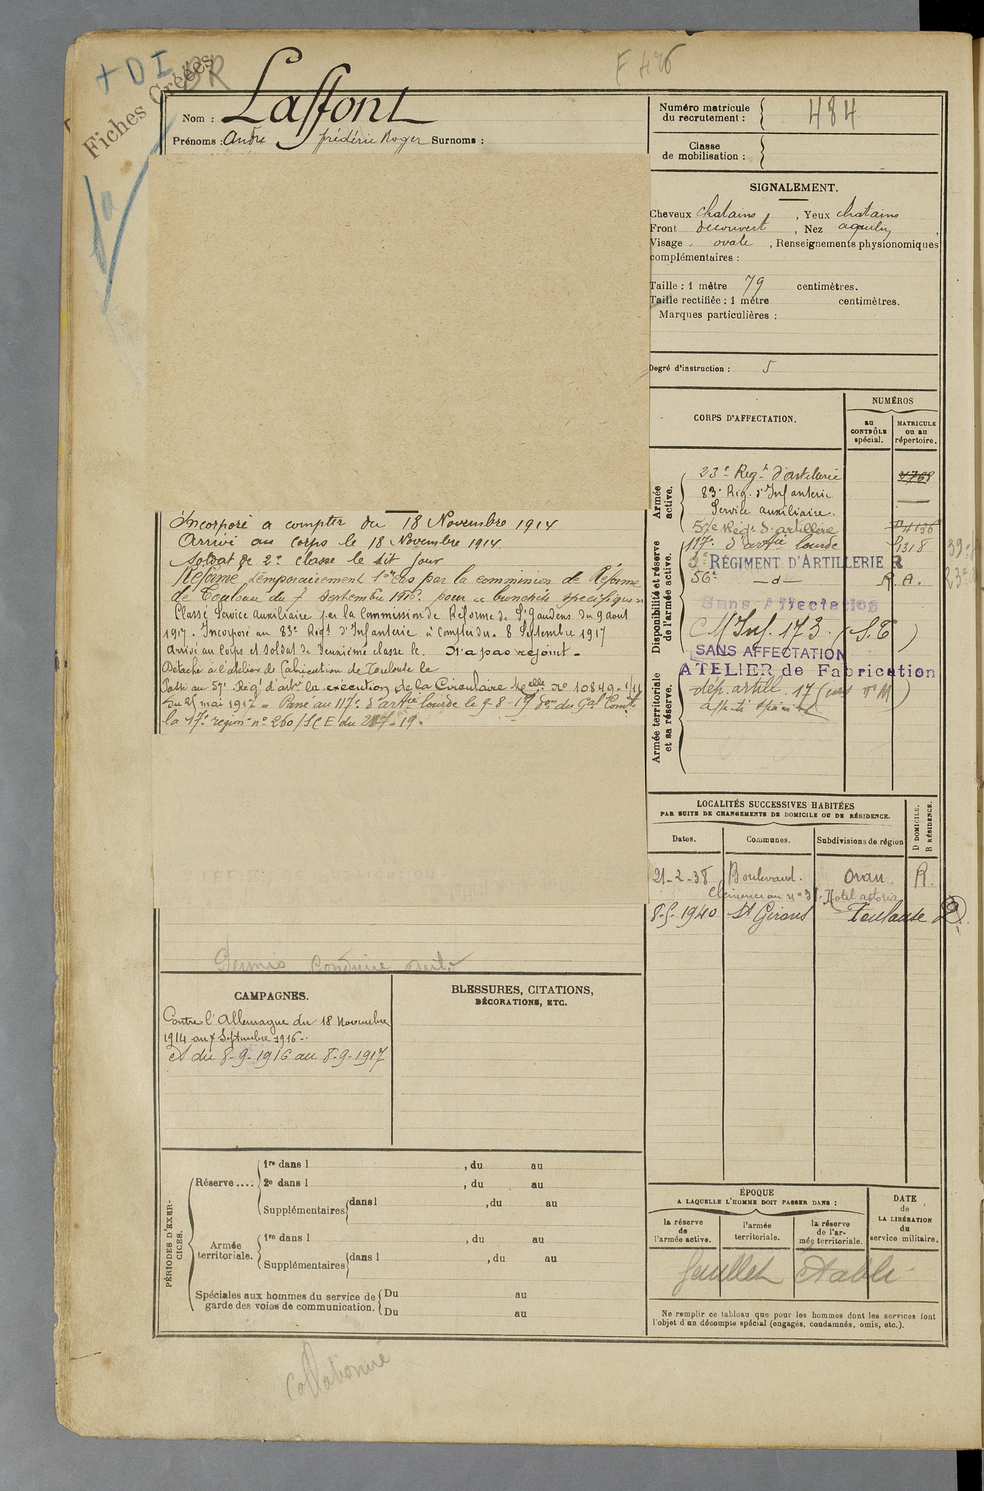 + DI
Fiches Créées
F 476
Nom : Laffont
Prénoms : André frédéric Roger Surnoms :
Numéro matricule du recrutement : 484
Classe de mobilisation :
SIGNALEMENT.
Cheveux chatains, Yeux chatains
Front découvert, Nez aquilin,
Visage ovale, Renseignements physionomiques
complémentaires :
Taille : 1 mètre 79 centimètres.
Taille rectifiée : 1 mètre centimètres.
Marques particulières :
Degré d'instruction : 5
CORPS D'AFFECTATION.
NUMÉROS
au CONTRÔLE spécial.
MATRICULE ou au répertoire.
Armée active.
23e Regt d'artillerie
83e Rég. d'Infanterie
Service auxiliaire.
57e Regt d'artillerie
Disponibilité et réserve de l'armée active.
117e d'artie lourde 1318
RÉGIMENT D'ARTILLERIE
56e - d - R.A.
Sans Affectation
C M Inf. 173. (S.T)
SANS AFFECTATION
ATELIER de Fabrication
Armée territoriale et sa réserve.
dép. artill. 17
Incorporé à compter du 18 Novembre 1914
Arrivé au corps le 18 Novembre 1914
soldat de 2e classe le dit jour
Réformé temporairement 1er cas par la commission de Réforme
de Toulouse du 7 septembre 1916 pour bronchite spécifique
Classé Service Auxiliaire par la Commission de Réforme de St Gaudens du 9 aout
1917. Incorporé au 83e Régt d'Infanterie à compter du 8 Septembre 1917
Arrivé au Corps et Soldat de deuxième classe le. N'a pas rejoint -
Détaché à l'atelier de fabrication de Toulouse le
Passé au 57e Régt d'artie en exécution de la Circulaire Melle No 10849-1/11
du 21 mai 1917 = Passé au 117e d'artie lourde le 9-8-19 don du Gal Comt
la 17e région no 260/1CE du
LOCALITÉS SUCCESSIVES HABITÉES
PAR SUITE DE CHANGEMENTS DE DOMICILE OU DE RÉSIDENCE.
Dates.
Communes.
Subdivisions de région
D DOMICILE. R RÉSIDENCE.
21-2-38 Boulevard. Oran. R.
Clemenceau no 31. Hotel astoria
8-5-1940 St Girons Toulouse D.
Permis Conduire auto
CAMPAGNES.
Contre l'Allemagne du 18 Novembre
1914 au 7 Septembre 1916.
et du 8-9-1916 au 8-9-1917
BLESSURES, CITATIONS,
DÉCORATIONS, ETC.
PÉRIODES D'EXERCICES.
Réserve....:
1re dans l , du au
2e dans l , du au
Supplémentaires dans l , du au
Armée territoriale.
1re dans l , du au
Supplémentaires dans l , du au
Spéciales aux hommes du service de garde des voies de communication.
Du au
Du au
ÉPOQUE
A LAQUELLE L'HOMME DOIT PASSER DANS :
la réserve de l'armée active.
l'armée territoriale.
la réserve de l'armée territoriale.
DATE de LA LIBÉRATION du service militaire.
feuillet établi
Ne remplir ce tableau que pour les hommes dont les services font
l'objet d'un décompte spécial (engagés, condamnés, omis, etc.).
Collationné